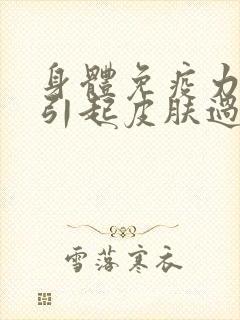 身體免疫力
引起皮膚過
雪落寒衣